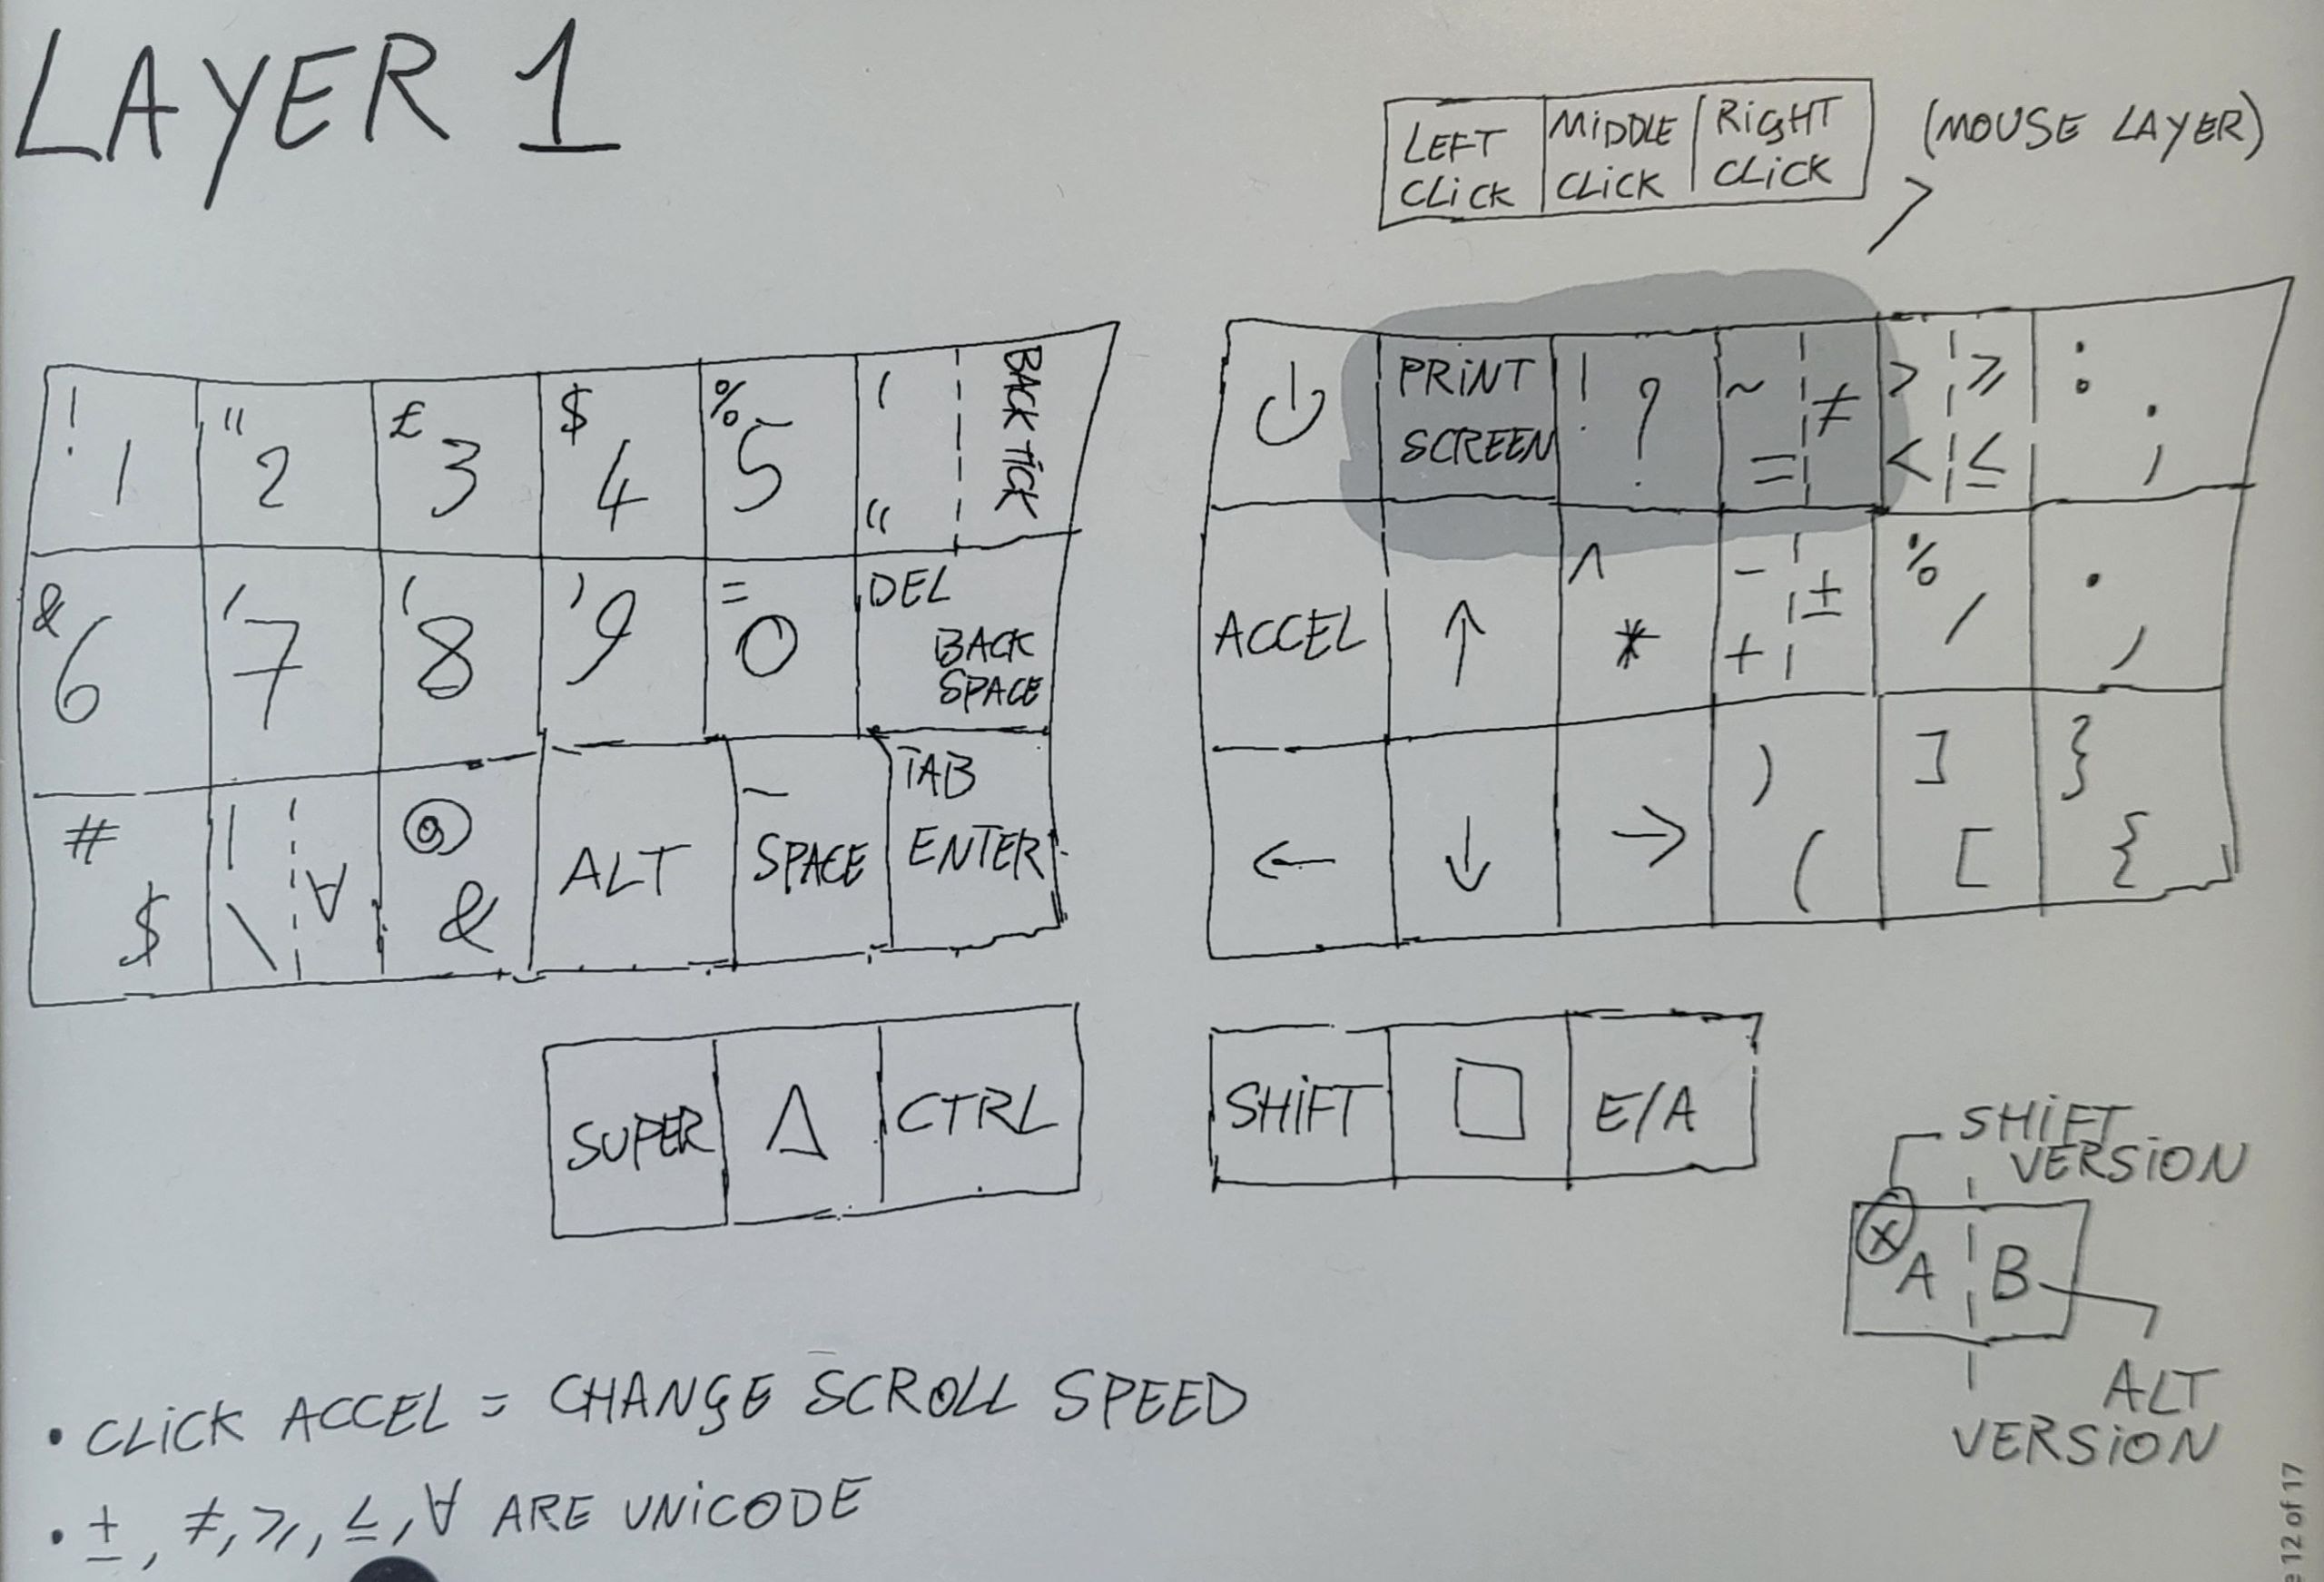 LAYER 1
LEFT CLICK MIDDLE CLICK RIGHT CLICK
(MOUSE LAYER)
! 1 " 2 £ 3 $ 4 % 5 ' " BACK TICK
& 6 ' 7 ( 8 ) 9 = 0 DEL BACK SPACE
# $ | \ ∀ @ & ALT _ SPACE TAB ENTER
SUPER △ CTRL
⏻ PRINT SCREEN ! ? ~ = ≠ > < ≥ ≤ : ;
ACCEL ↑ ^ * - + ± % / . ,
← ↓ → ) ( ] [ } {
SHIFT □ E/A
SHIFT
VERSION
X A B
ALT
VERSION
• CLICK ACCEL = CHANGE SCROLL SPEED
• ±, ≠, ≥, ≤, ∀ ARE UNICODE
12 of 17